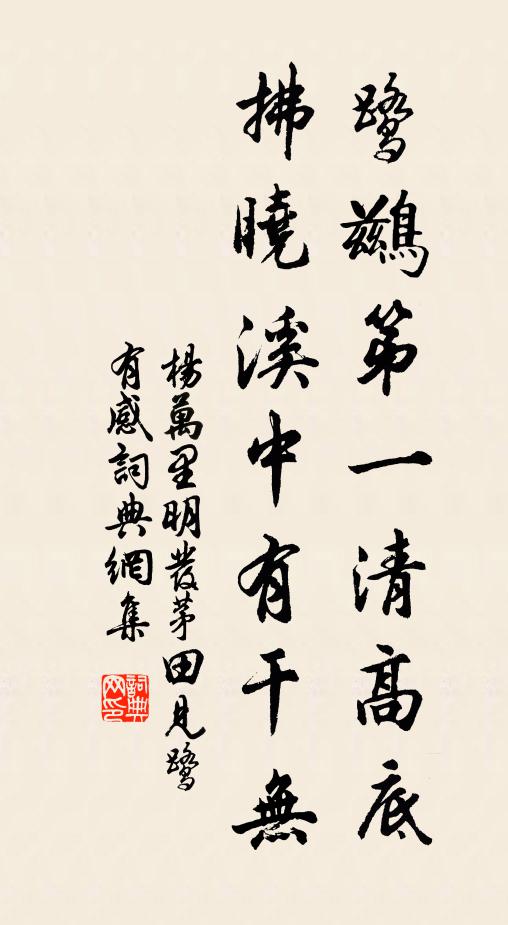 鹭鷀第一清高底
拂曉溪中有干無
楊萬里明發茅田見鹭
有感詞典網集
詞典网印